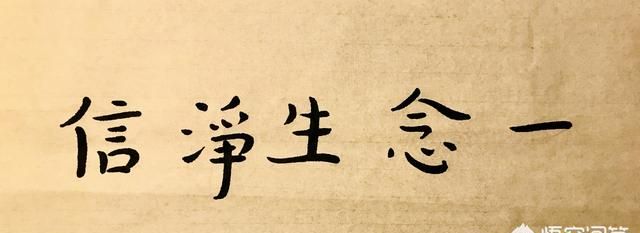 一念生淨信
悟空问答